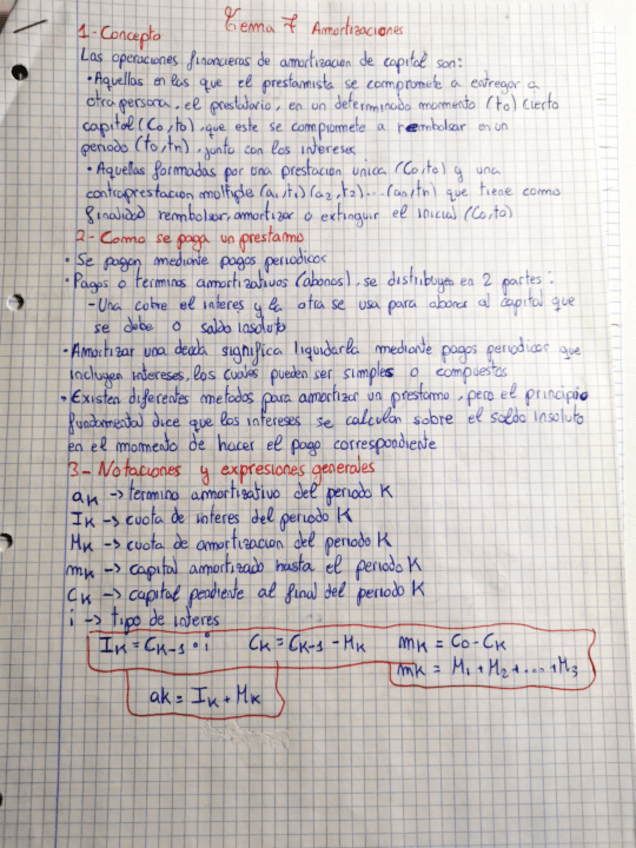 Tema 7 Amortizaciones
1-Concepto
Las operaciones financieras de amortizacion de capital son:
• Aquellas en las que el prestamista se compromete a entregar a
otra persona, el prestatario, en un determinado momento (to) cierto
capital (Co, to), que este se compromete a reembolsar en un
periodo (to, tn), junto con los intereses
• Aquellas formadas por una prestacion unica (Co, to) y una
contraprestacion multiple (a1, t1) (a2, t2)... (an, tn) que tiene como
finalidad reembolsar, amortizar o extinguir el inicial (Co, to)
2- Como se paga un prestamo
• Se pagan mediante pagos periodicos
• Pagos o terminos amortizativos (abonos), se distribuyen en 2 partes:
- Una cobre el interes y la otra se usa para abonar al capital que
se debe o saldo insoluto
- Amortizar una deuda significa liquidarla mediante pagos periodicos que
incluyen intereses, los cuales pueden ser simples o compuestos
• Existen diferentes metodos para amortizar un prestamo, pero el principio
fundamental dice que los intereses se calculan sobre el saldo insoluto
en el momento de hacer el pago correspondiente
3- Notaciones y expresiones generales
aK -> termino amortizativo del periodo K
IK -> cuota de interes del periodo K
MK -> cuota de amortizacion del periodo K
mK -> capital amortizado hasta el periodo K
CK -> capital pendiente al final del periodo K
i -> tipo de interes
IK = CK-1 · i CK = CK-1 - MK mK = Co - CK
mK = M1 + M2 + ... + M3
aK = IK + MK